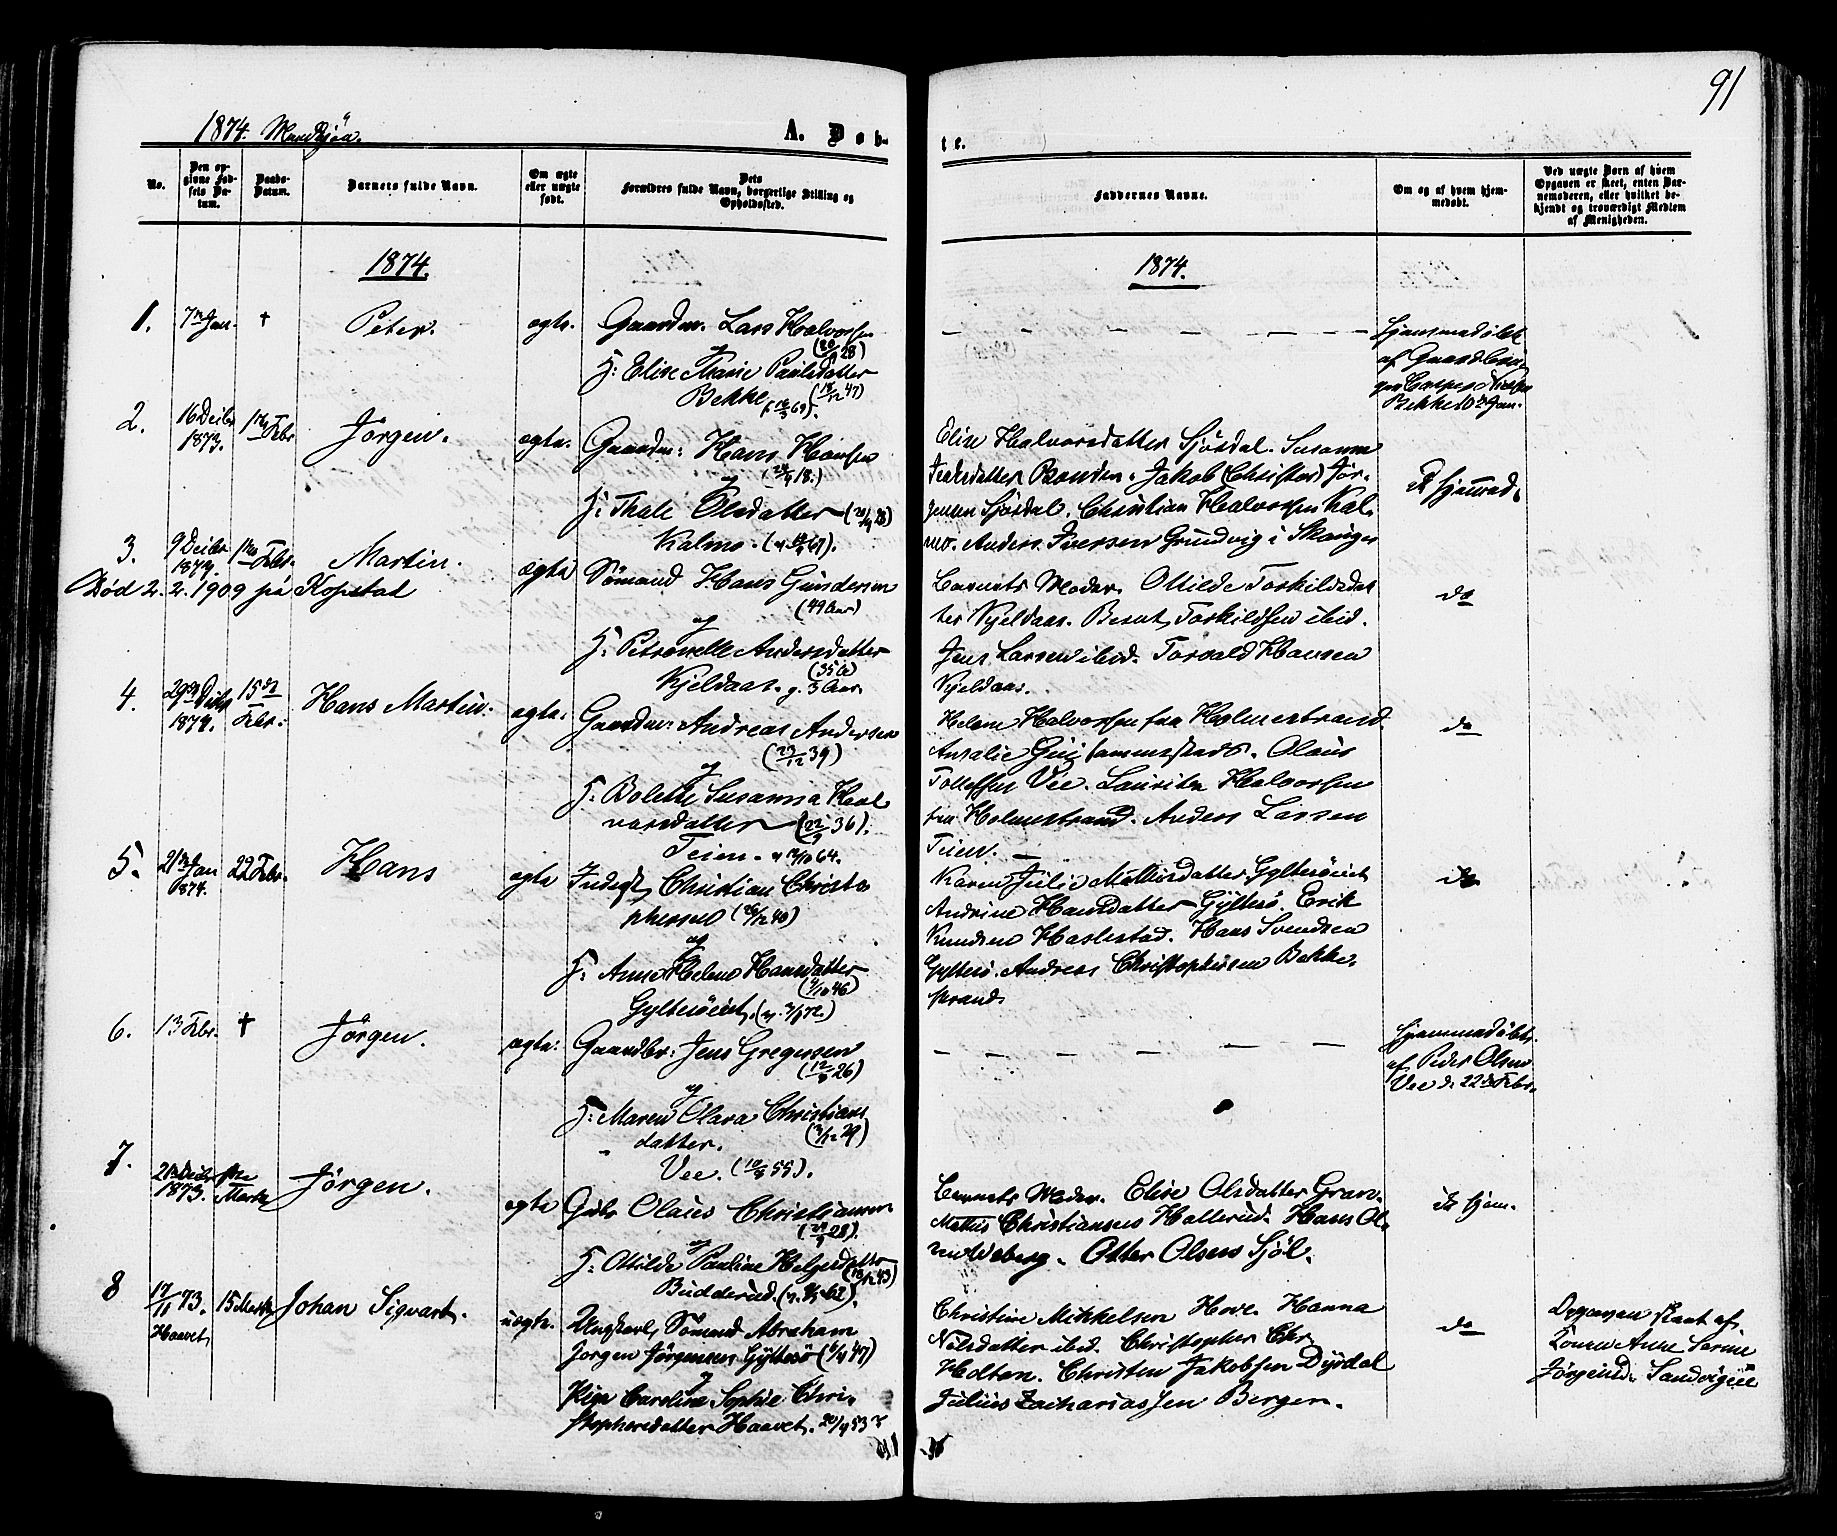 91
1874. Mandkjøn.
A. Døb-
te.
No.
Den op-
givne Fød-
sels Da-
tum.
Daabs-
Datum.
Barnets fulde Navn.
Om ægte
eller uægte
født.
Dets
Forældres fulde Navn, borgerlige Stilling og
Opholdssted.
Faddernes Navne.
Om og af hvem hjem-
medøbt.
Ved uægte Børn af hvem
Opgaven er skeet, enten Bar-
nemoderen, eller hvilket be-
kjendt og troværdigt Medlem
af Menigheden.
1874.
1874.
1.
7de Jan.
†
Peter.
ægte.
Gaardm. Lars Halvorsen
og
H: Elise Marie Paulsdatter
Bekke
Hjemmedøbt
af Gaardbru-
Bekke 10de Jan.
2.
16 Decbr
1873.
1ste Febr
Jørgen.
ægte.
Gaardm: Hans Hansen
og
H: Thale Olsdatter
Kalmo.
Elise Halvorsdatter Sjøsdal. Susanne
Bonden. Jakob (Christian) Jør-
gensen Sjøsdal. Christian Halvorsen Kal-
mo. Anders Iversen Grundvig i Skouger
Er hjemmed.
3.
9 Decbr
1873.
1ste Febr.
Martin.
Død 2. 2. 1909 på Kopstad
ægte
Sømand Hans Gundersen
(49 Aar)
og
H. Petronelle Andersdatter
(35 A)
Kjeldaas. g. 3 Aar
Barnets Moder. Otilde Torkildsdat
ter Kjeldaas. Bernt Torkildsen ibid.
Jens Larsen ibid. Torvald Hansen
Kjeldaas.
do
4.
29de Decbr
1874.
15de
Febr.
Hans Martin.
ægte.
Gaardm: Andreas Andersen
(23/12 39)
og
H. Bolette Susanna Hal
vorsdatter (22/9 36).
Teien.
Helene Halvorsen fra Holmestrand.
sammesteds. Olaus
Tollefsen Vee. Lauritz Halvorsen
fra Holmestrand. Anders Larsen
Teien.
do
5.
21de Jan
1874.
22 Febr.
Hans
ægte
Inderst, Christian Christo
phersen (26/12 40)
og
H. Anne Helene Hansdatter
(9/10 46)
Gyltesøeiet.
Karen Julie Mathisdatter Gyltesøeiet
Andrine Hansdatter Gyltesø. Erik
Knudsen Haslestad. Hans Svendsen
Gyltesø. Andreas Christophersen Bekke-
strand.
do
6.
13 Febr.
†
Jørgen.
ægte.
Gaardbr: Jens Gregersen
(12/8 26)
og
H: Maren Olava Christians
datter.
Vee.
Hjemmedøbt.
af Peder Olsen
Vee d. 22de Febr.
7.
21de Decbr
1873.
1ste
Marts
Jørgen.
ægte
Gbr. Olaus Christiansen
og
H. Otilde Pauline Helgesdatter
Budderud.
Barnets Moder. Elise Olsdatter Gran.
Mathis Christiansen Hallerud. Hans Ol-
Otter Olsen Sjøl.
Er hjem.
8
17/11 73.
Haavet
15 Marts
Johan Sigvart.
uægte.
Ungkarl, Sømand Abraham
Jørgen Jørgensen Gyltesø (6/4 47)
og
Pige Caroline Sophie Chri-
stophersdatter Haavet. 20/4 53
Christine Mikkelsen Hove. Hanna
Nilsdatter ibid. Christopher Chr.
Holtan. Christen Jakobsen Dysdal
Julius Zachariassen Bergen.
do
Opgaven skeet af
Konen Anne Serine
Jørgensd. Sandvigeie